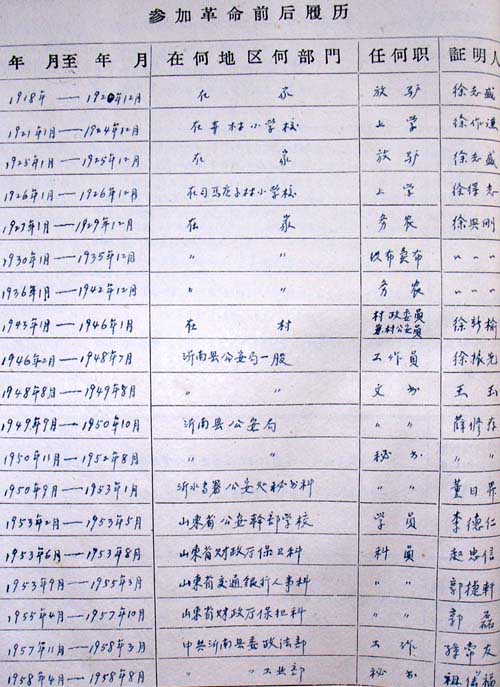 参加革命前后履历
年 月至 年 月 在何地区何部門 任何职 証明人
1918年——1920年12月 在 家 放驴 徐志盛
1921年1月——1924年12月 在本村小学校 上学 徐作谦
1925年1月——1925年12月 在 家 放驴 徐志盛
1926年1月——1926年12月 在司马庄子村小学校 上学 徐得志
1927年1月——1929年12月 在 家 务农 徐興刚
1930年1月——1935年12月 〃 〃 织布卖布 〃 〃 〃
1936年1月——1942年12月 〃 〃 务农 〃 〃 〃
1943年1月——1946年1月 在 村 村政委員 村公安員 徐彭榆
1946年2月——1948年7月 沂南县公安局一股 工作員 徐振光
1948年8月——1949年8月 〃 〃 文书 王玉
1949年9月——1950年10月 沂南县公安局 〃 〃 薛修存
1950年11月——1952年8月 〃 〃 秘书 〃 〃
1950年9月——1953年1月 沂水专署公安处秘书科 〃 〃 董日昇
1953年2月——1953年5月 山東省公安幹部学校 学員 李德仁
1953年6月——1953年8月 山東省财政厅保卫科 科員 赵忠信
1953年9月——1955年3月 山東省交通银行人事科 〃 〃 郭捷轩
1955年4月——1957年10月 山東省财政厅保卫科 〃 〃 郭磊
1957年11月——1958年3月 中共沂南县委政法部 工作 孫常友
1958年4月——1958年8月 〃 〃工业部 秘书 祖德福